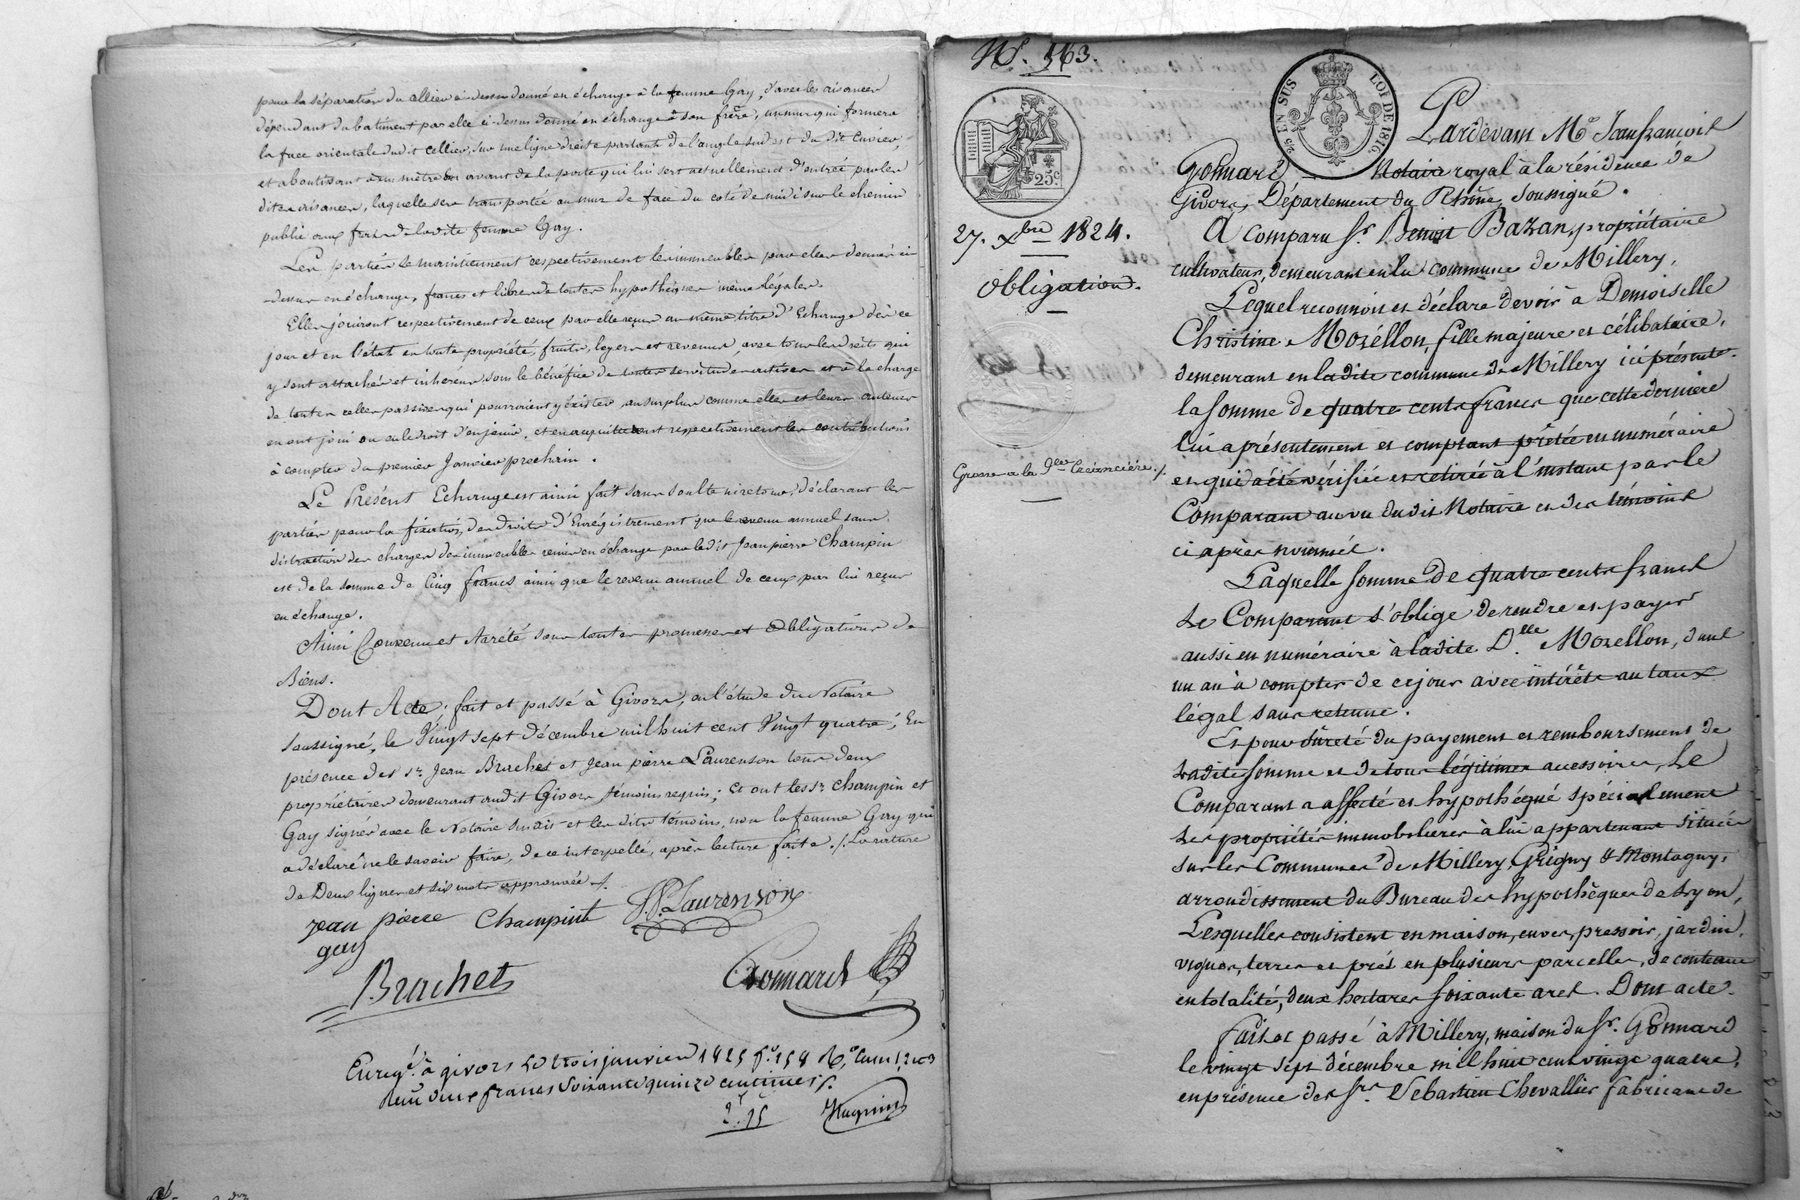 pour la séparation du cellier ci-dessus donné en échange à la femme Gay, d'avec les aisances
dépendant du batiment par elle ci-dessus donné en échange à son frère, un mur qui formera
la face orientale dudit cellier, sur une ligne droite partant de l'angle sud est du dit Cuvier,
et aboutissant à un mètre en avant de la porte qui lui sert actuellement d'entrée par les
dites aisances, laquelle sera transportée au mur de face du coté de midi sur le chemin
public aux frais de la dite femme Gay.
Les parties se maintiennent respectivement les immeubles par elles donnés ci-
dessus en échange, francs et libres de toutes hypothèques même légales.
Elles jouiront respectivement de ceux par elle reçus au même titre d'Echange dès ce
jour et en l'état en toute propriété, fruits, loyers et revenus, avec tous les droits qui
y sont attachés et inhérens sous le bénéfice de toutes servitudes actives et à la charge
de toutes celles passives qui pourroient y exister, au surplus comme elles et leurs auteurs
en ont joui ou eu le droit d'en jouir, et en acquittant respectivement les contributions
à compter du premier Janvier prochain.
Le Présent Echange est ainsi fait sans soulte ni retour, déclarant les
parties pour la fixation des droits d'Enrégistrement que le revenu annuel sans
distraction des charges des immeubles remis en échange par le dit Jean pierre Champin
est de la somme de Cinq francs ainsi que le revenu annuel de ceux par lui reçus
en échange.
Ainsi Convenu et Arrêté sous toutes promesses et Obligations de
Biens.
Dont Acte: fait et passé à Givors, en l'étude du Notaire
soussigné, le Vingt sept décembre mil huit cent Vingt quatre; En
présence des srs. Jean Brachet et Jean pierre Laurenson tous deux
propriétaires demeurant audit Givors témoins requis; et ont les srs. Champin et
Gay signés avec le Notaire susdit et les dits témoins, non la femme Gay qui
a déclaré ne le savoir faire, de ce interpellé, après lecture faite ./. La rature
de Deux lignes et six mots approuvée ./.
jean pierre Champin J.P. Laurenson
gay
Brachet Gonnard
Enregé. à givors le trois janvier 1825 fo. 158
Reçu deux francs soixante quinze centimes ./.
No. 563.
25 EN SUS LOI DE 1816
25c
27. Xbre 1824.
Obligation.
Grosse a la Dlle Créancière ./.
Pardevant Me. Jean françois
Gonnard Notaire royal à la résidence de
Givors, Département du Rhône, soussigné.
A comparu Sr. Benoit Bazan, propriétaire
cultivateur, demeurant en la commune de Millery,
Lequel reconnoit et déclare devoir à Demoiselle
Christine Mozéllon, fille majeure et célibataire,
demeurant en la dite commune de Millery ici présente.
la somme de quatre cents francs que cette dernière
lui a présentement et comptant prêtée en numéraire
et qui a été vérifiée et retirée à l'instant par le
Comparant au vu du dit Notaire et des témoins
ci après nommés.
Laquelle somme de quatre cents francs
Le Comparant s'oblige de rendre et payer
aussi en numéraire à ladite Dlle. Mozellon, dans
un an à compter de ce jour avec intérêts au taux
légal sans retenue.
Et pour sûreté du payement et remboursement de
Ladite somme et de tous légitimes accessoires, Le
Comparant a affecté et hypothéqué spécialement
Les propriétés immobilières à lui appartenant situées
sur les Communes de Millery, Grigny & Montagny,
arrondissement du Bureau des hypothèques de Lyon,
Lesquelles consistent en maison, cuves, pressoir, jardin,
vignes, terres et prés en plusieurs parcelles, de contenue
en totalité, deux hectares soixante ares. Dont acte.
Fait et passé à Millery, maison du Sr. Gonnard
le vingt sept décembre mil huit cent vingt quatre,
en présence des Srs. Sébastien Chevallier fabricant de